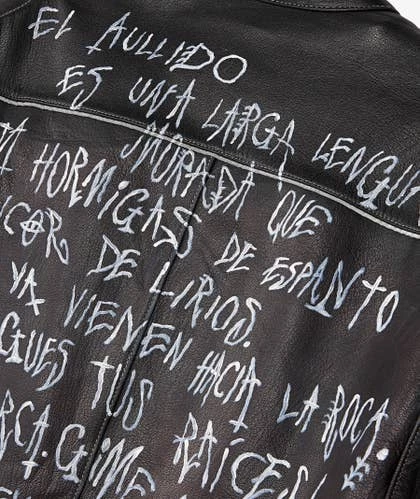 EL AULLIDO
ES UNA LARGA LENGU
MORADA QUE
A HORMIGAS DE ESPANTO
ICOR DE LIRIOS.
YA VIENEN HACIA LA ROCA.
GUES TUS RAÍCES
RCA. GIME